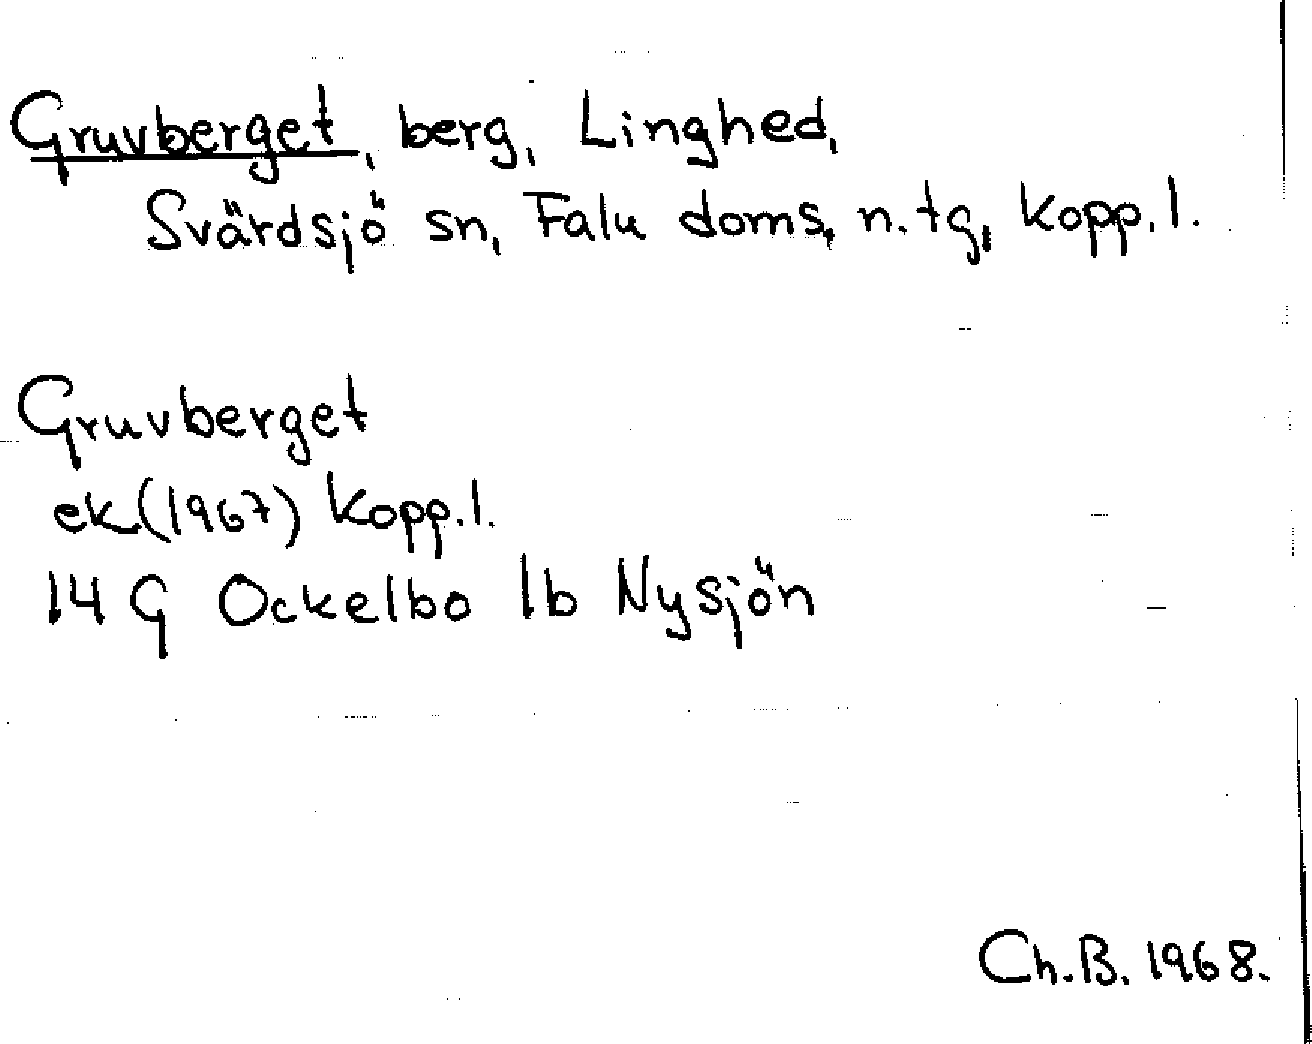 Gruvberget, berg, Linghed,
Svärdsjö sn, Falu doms, n.tg, Kopp.l.
Gruvberget
ek(1967) Kopp.l.
14 G Ockelbo 1b Nysjön
Ch.B. 1968.